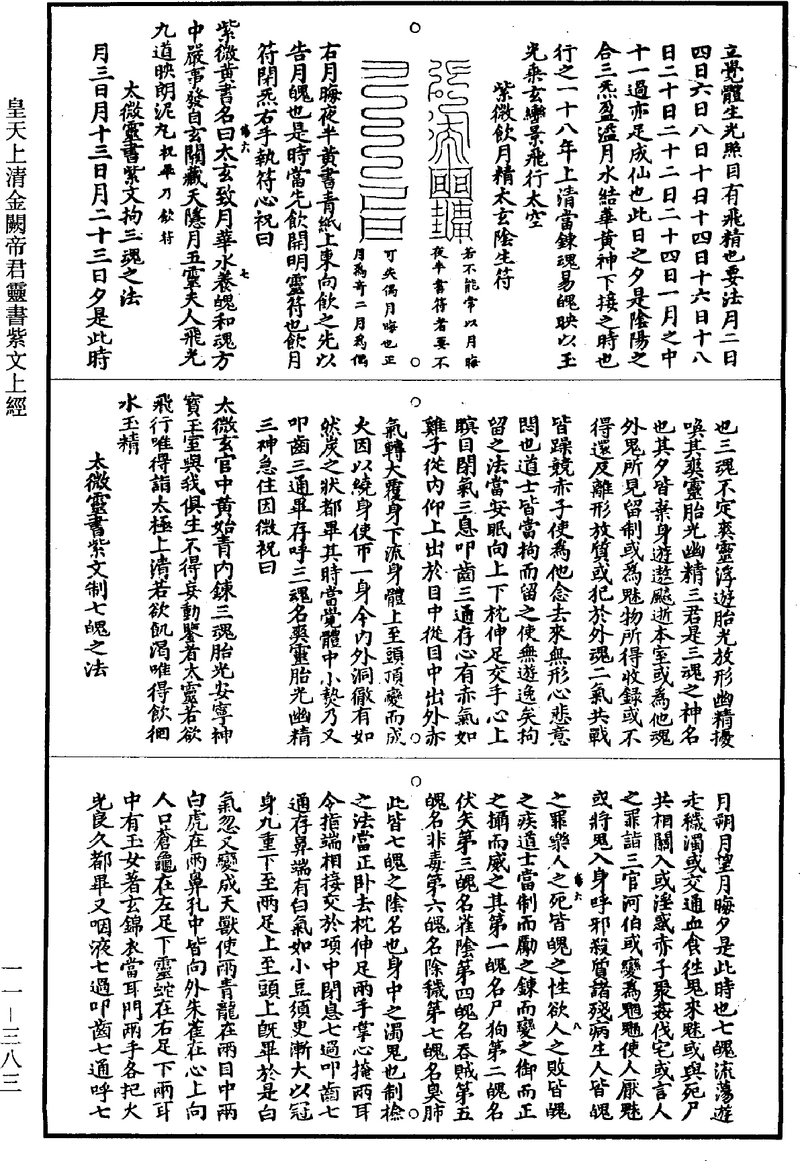 皇天上清金闕帝君靈書紫文上經
一一—三八三
立覺體生光照目有飛精也要法月二日
四日六日八日十日十四日十六日十八
日二十日二十二日二十四日一月之中
十一過亦足成仙也此日之夕是陰陽之
合三炁盈溢月水結華黃神下接之時也
行之一十八年上清當鍊魂易魄映以玉
光乘玄轡景飛行太空
紫微飲月精太玄陰生符
若不能常以月晦
夜半書符者要不
可失偶月晦也正
月為奇二月為偶
右月晦夜半黃書青紙上東向飲之先以
告月魄也是時當先飲開明靈符也飲月
符閉炁右手執符心祝曰
紫微黃書名曰太玄致月華水養魄和魂方
中嚴事發自玄關藏天隱月五靈夫人飛光
九道映朗泥丸祝畢乃飲符
太微靈書紫文拘三魂之法
月三日月十三日月二十三日夕是此時
也三魂不定爽靈浮遊胎光放形幽精擾
喚其爽靈胎光幽精三君是三魂之神名
也其夕皆棄身遊遨飈逝本室或為他魂
外鬼所見留制或為魅物所得收錄或不
得還反離形放質或犯於外魂二氣共戰
皆躁競赤子使為他念去來無形心悲意
悶也道士皆當拘而留之使無遊逸矣拘
留之法當安眠向上下枕伸足交手心上
瞑目閉氣三息叩齒三通存心有赤氣如
雞子從內仰上出於目中從目中出外赤
氣轉大覆身下流身體上至頭頂變而成
火因以繞身使帀一身令內外洞徹有如
然炭之狀都畢其時當覺體中小熱乃又
叩齒三通畢存呼三魂名爽靈胎光幽精
三神急住因微祝曰
太微玄宮中黃始青內鍊三魂胎光安寧神
寶玉室與我俱生不得妄動鑒者太靈若欲
飛行唯得詣太極上清若欲飢渴唯得飲徊
水玉精
太微靈書紫文制七魄之法
月朔月望月晦夕是此時也七魄流蕩遊
走穢濁或交通血食往鬼來魅或與死尸
共相關入或淫惑赤子聚姦伐宅或言人
之罪詣三官河伯或變為魍魎使人厭魅
或將鬼入身呼邪殺質諸殘病生人皆魄
之罪樂人之死皆魄之性欲人之敗皆魄
之疾道士當制而厲之鍊而變之御而正
之攝而威之其第一魄名尸狗第二魄名
伏矢第三魄名雀陰第四魄名吞賊第五
魄名非毒第六魄名除穢第七魄名臭肺
此皆七魄之陰名也身中之濁鬼也制檢
之法當正卧去枕伸足兩手掌心掩兩耳
令指端相接交於項中閉息七過叩齒七
通存鼻端有白氣如小豆須臾漸大以冠
身九重下至兩足上至頭上既畢於是白
氣忽又變成天獸使兩青龍在兩目中兩
白虎在兩鼻孔中皆向外朱雀在心上向
人口蒼龜在左足下靈蛇在右足下兩耳
中有玉女著玄錦衣當耳門兩手各把火
光良久都畢又咽液七過叩齒七通呼七